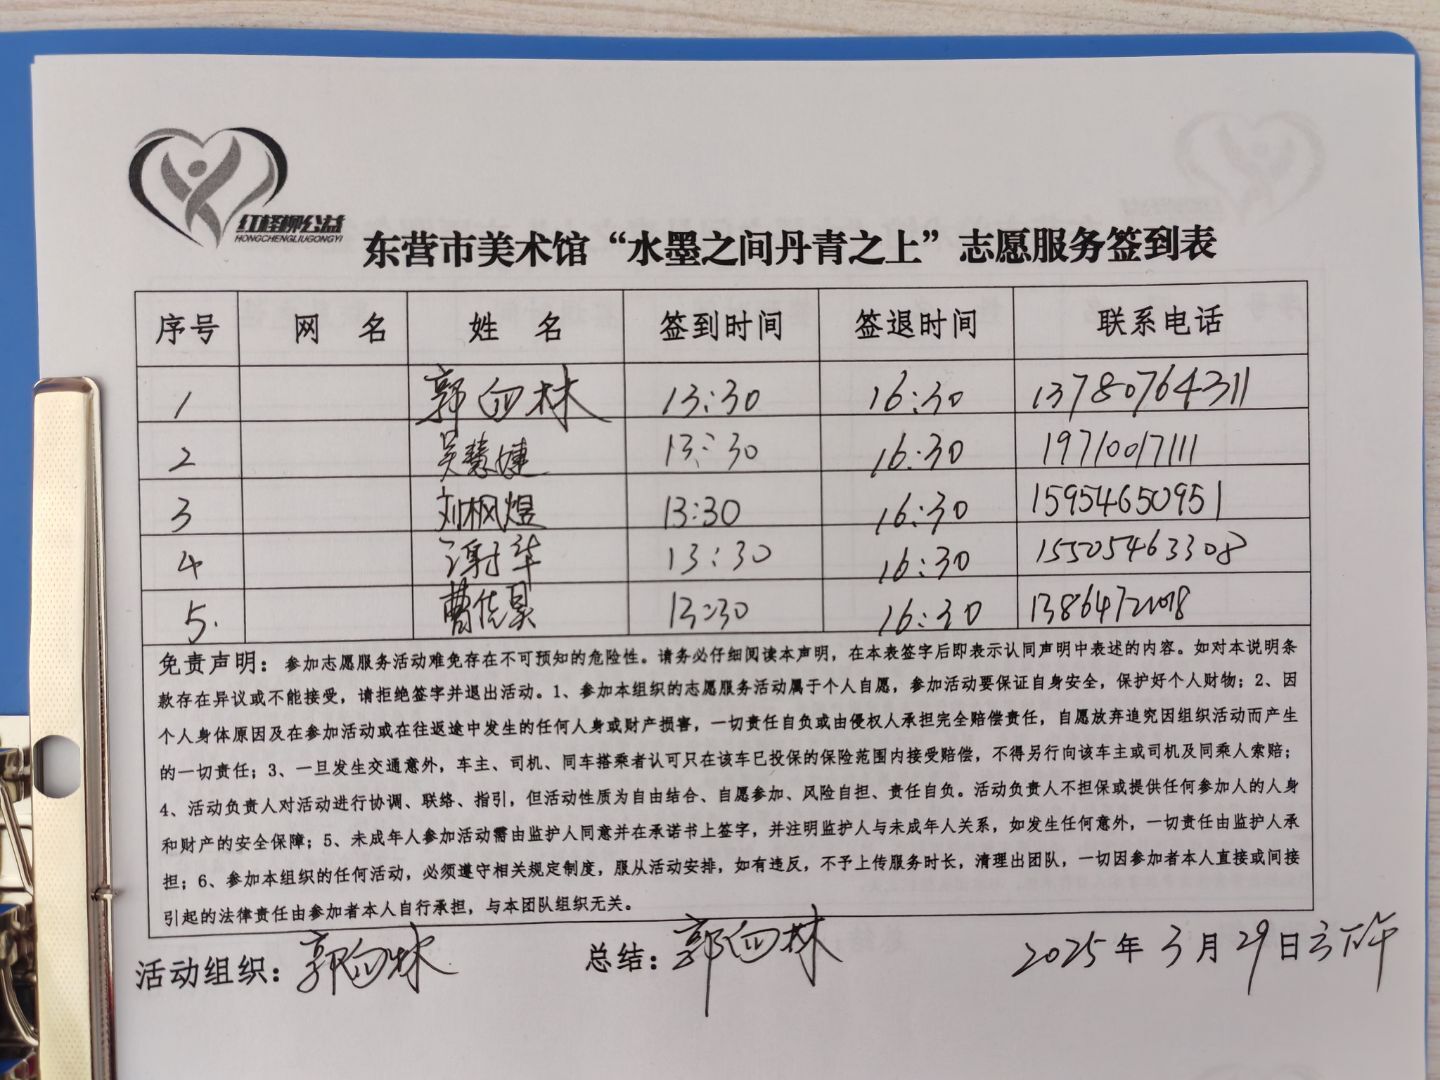 红柽柳公益
HONGCHENGLIUGONGYI
东营市美术馆“水墨之间丹青之上”志愿服务签到表
序号 网 名 姓 名 签到时间 签退时间 联系电话
1 郭向林 13:30 16:30 13780764311
2 吴慧婕 13:30 16:30 19710017111
3 刘枫煜 13:30 16:30 15954650951
4 谢华 13:30 16:30 15505463308
5. 曹佐昊 13:30 16:30
免责声明：参加志愿服务活动难免存在不可预知的危险性。请务必仔细阅读本声明，在本表签字后即表示认同声明中表述的内容。如对本说明条
款存在异议或不能接受，请拒绝签字并退出活动。1、参加本组织的志愿服务活动属于个人自愿，参加活动要保证自身安全，保护好个人财物；2、因
个人身体原因及在参加活动或在往返途中发生的任何人身或财产损害，一切责任自负或由侵权人承担完全赔偿责任，自愿放弃追究因组织活动而产生
的一切责任；3、一旦发生交通意外，车主、司机、同车搭乘者认可只在该车已投保的保险范围内接受赔偿，不得另行向该车主或司机及同乘人索赔；
4、活动负责人对活动进行协调、联络、指引，但活动性质为自由结合、自愿参加、风险自担、责任自负。活动负责人不担保或提供任何参加人的人身
和财产的安全保障；5、未成年人参加活动需由监护人同意并在承诺书上签字，并注明监护人与未成年人关系，如发生任何意外，一切责任由监护人承
担；6、参加本组织的任何活动，必须遵守相关规定制度，服从活动安排，如有违反，不予上传服务时长，清理出团队，一切因参加者本人直接或间接
引起的法律责任由参加者本人自行承担，与本团队组织无关。
活动组织：郭向林 总结：郭向林 2025年3月29日 下午